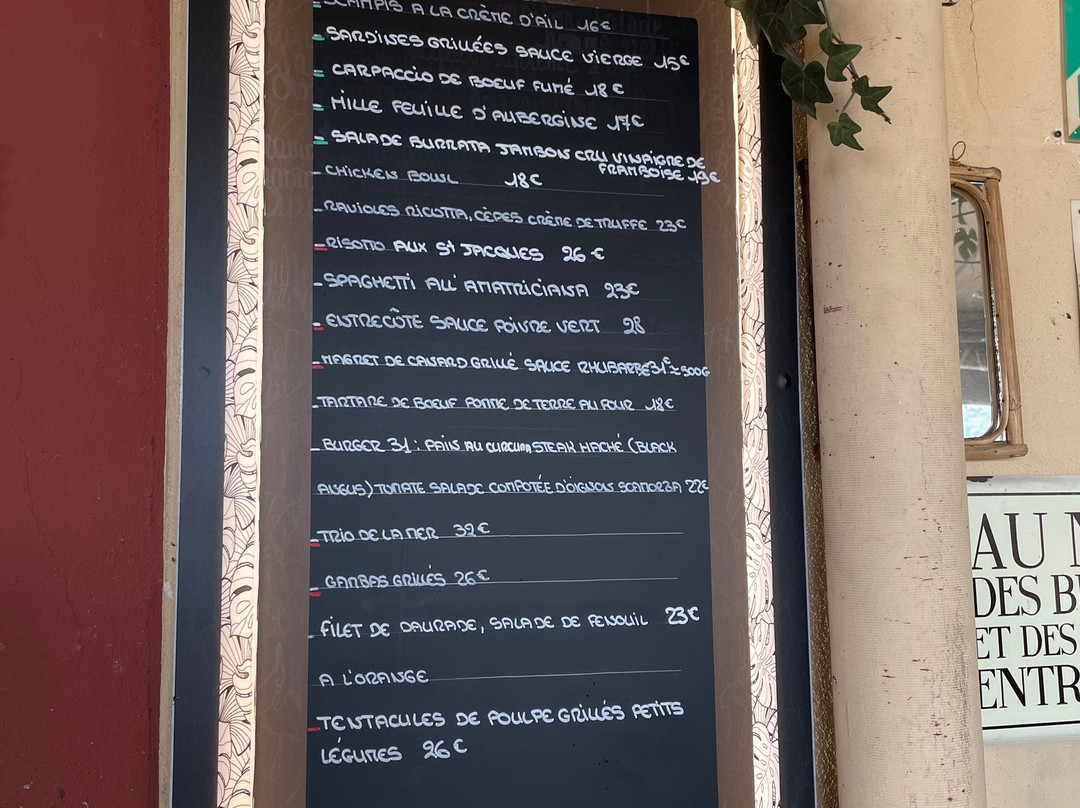 SCAMPIS A LA CRÈME D'AIL 16€
- SARDINES GRILLÉES SAUCE VIERGE 15€
- CARPACCIO DE BOEUF FUMÉ 18€
- MILLE FEUILLE D'AUBERGINE 17€
- SALADE BURRATA JAMBON CRU VINAIGRE DE
FRAMBOISE 19€
- CHICKEN BOWL 18€
- RAVIOLES RICOTTA, CÈPES CRÈME DE TRUFFE 23€
- RISOTTO AUX ST JACQUES 26€
- SPAGHETTI ALL' AMATRICIANA 23€
- ENTRECÔTE SAUCE POIVRE VERT 28
- MAGRET DE CANARD GRILLÉ SAUCE RHUBARBE 31€ ≃ 500G
- TARTARE DE BOEUF POMME DE TERRE AU FOUR 18€
- BURGER 31 : PAIN AU CURCUMA STEAK HACHÉ (BLACK
ANGUS) TOMATE SALADE COMPOTÉE D'OIGNON SCAMORZA 22€
- TRIO DE LA MER 32€
- GAMBAS GRILLÉS 26€
- FILET DE DAURADE, SALADE DE FENOUIL 23€
A L'ORANGE
- TENTACULES DE POULPE GRILLÉS PETITS
LÉGUMES 26€
AU
DES B
ET DES
ENTR